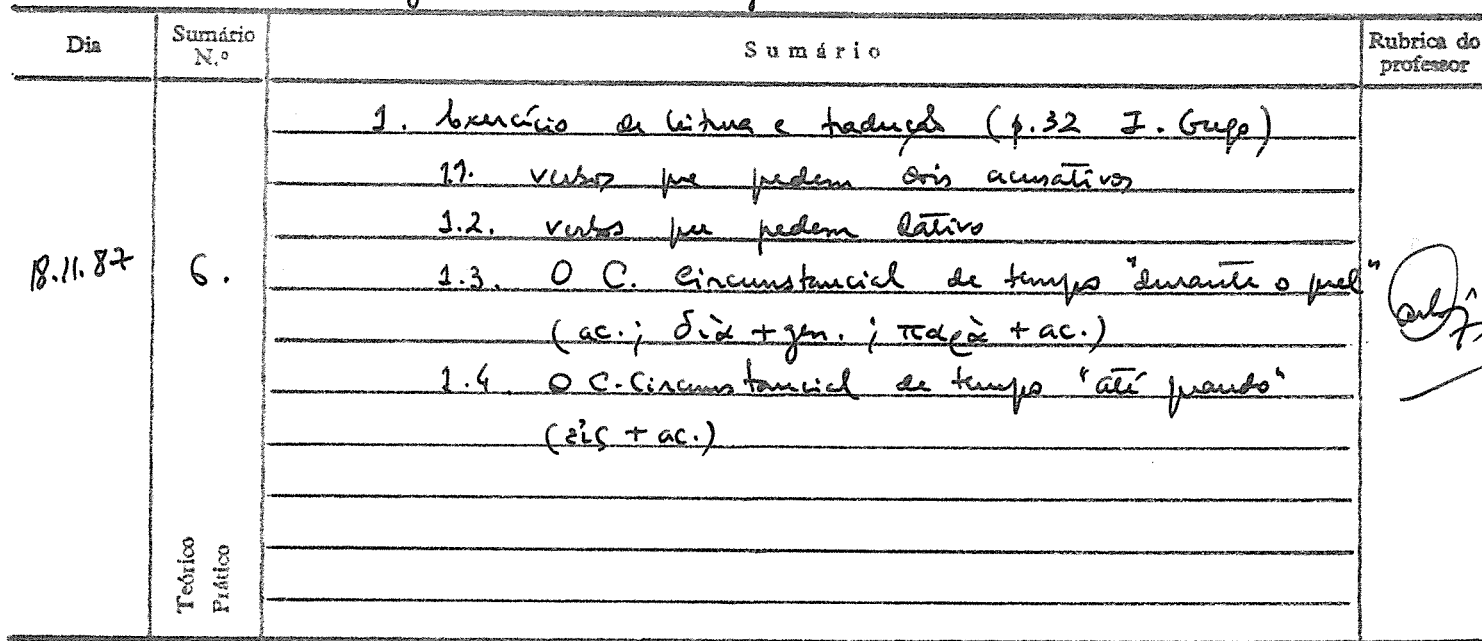 Dia Sumário N.º Sumário Rubrica do professor
1. Exercício de leitura e tradução (p.32 I. Grego)
1.1. verbos que pedem dois acusativos
1.2. verbos que pedem dativo
18.11.87 6. 1.3. O C. Circunstancial de tempo "durante o qual"
(ac.; διὰ + gen.; παρὰ + ac.)
1.4. O C. Circunstancial de tempo "até quando"
(εἰς + ac.)
Teórico
Prático